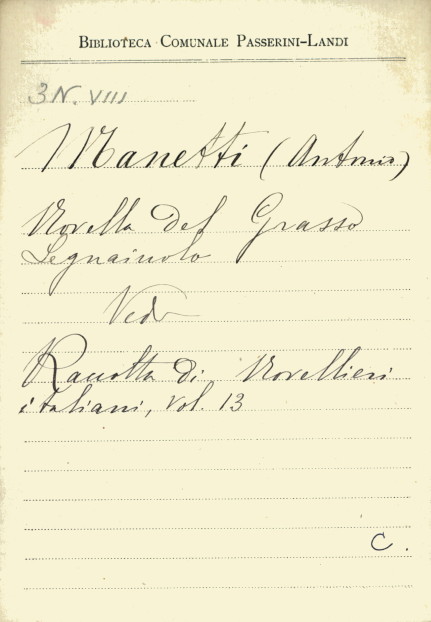 Biblioteca Comunale Passerini-Landi
3N. VIII
Manetti (Antonio)
Novella del Grasso
Legnaiuolo
Vedi
Raccolta di Novellieri
italiani, vol. 13
C.